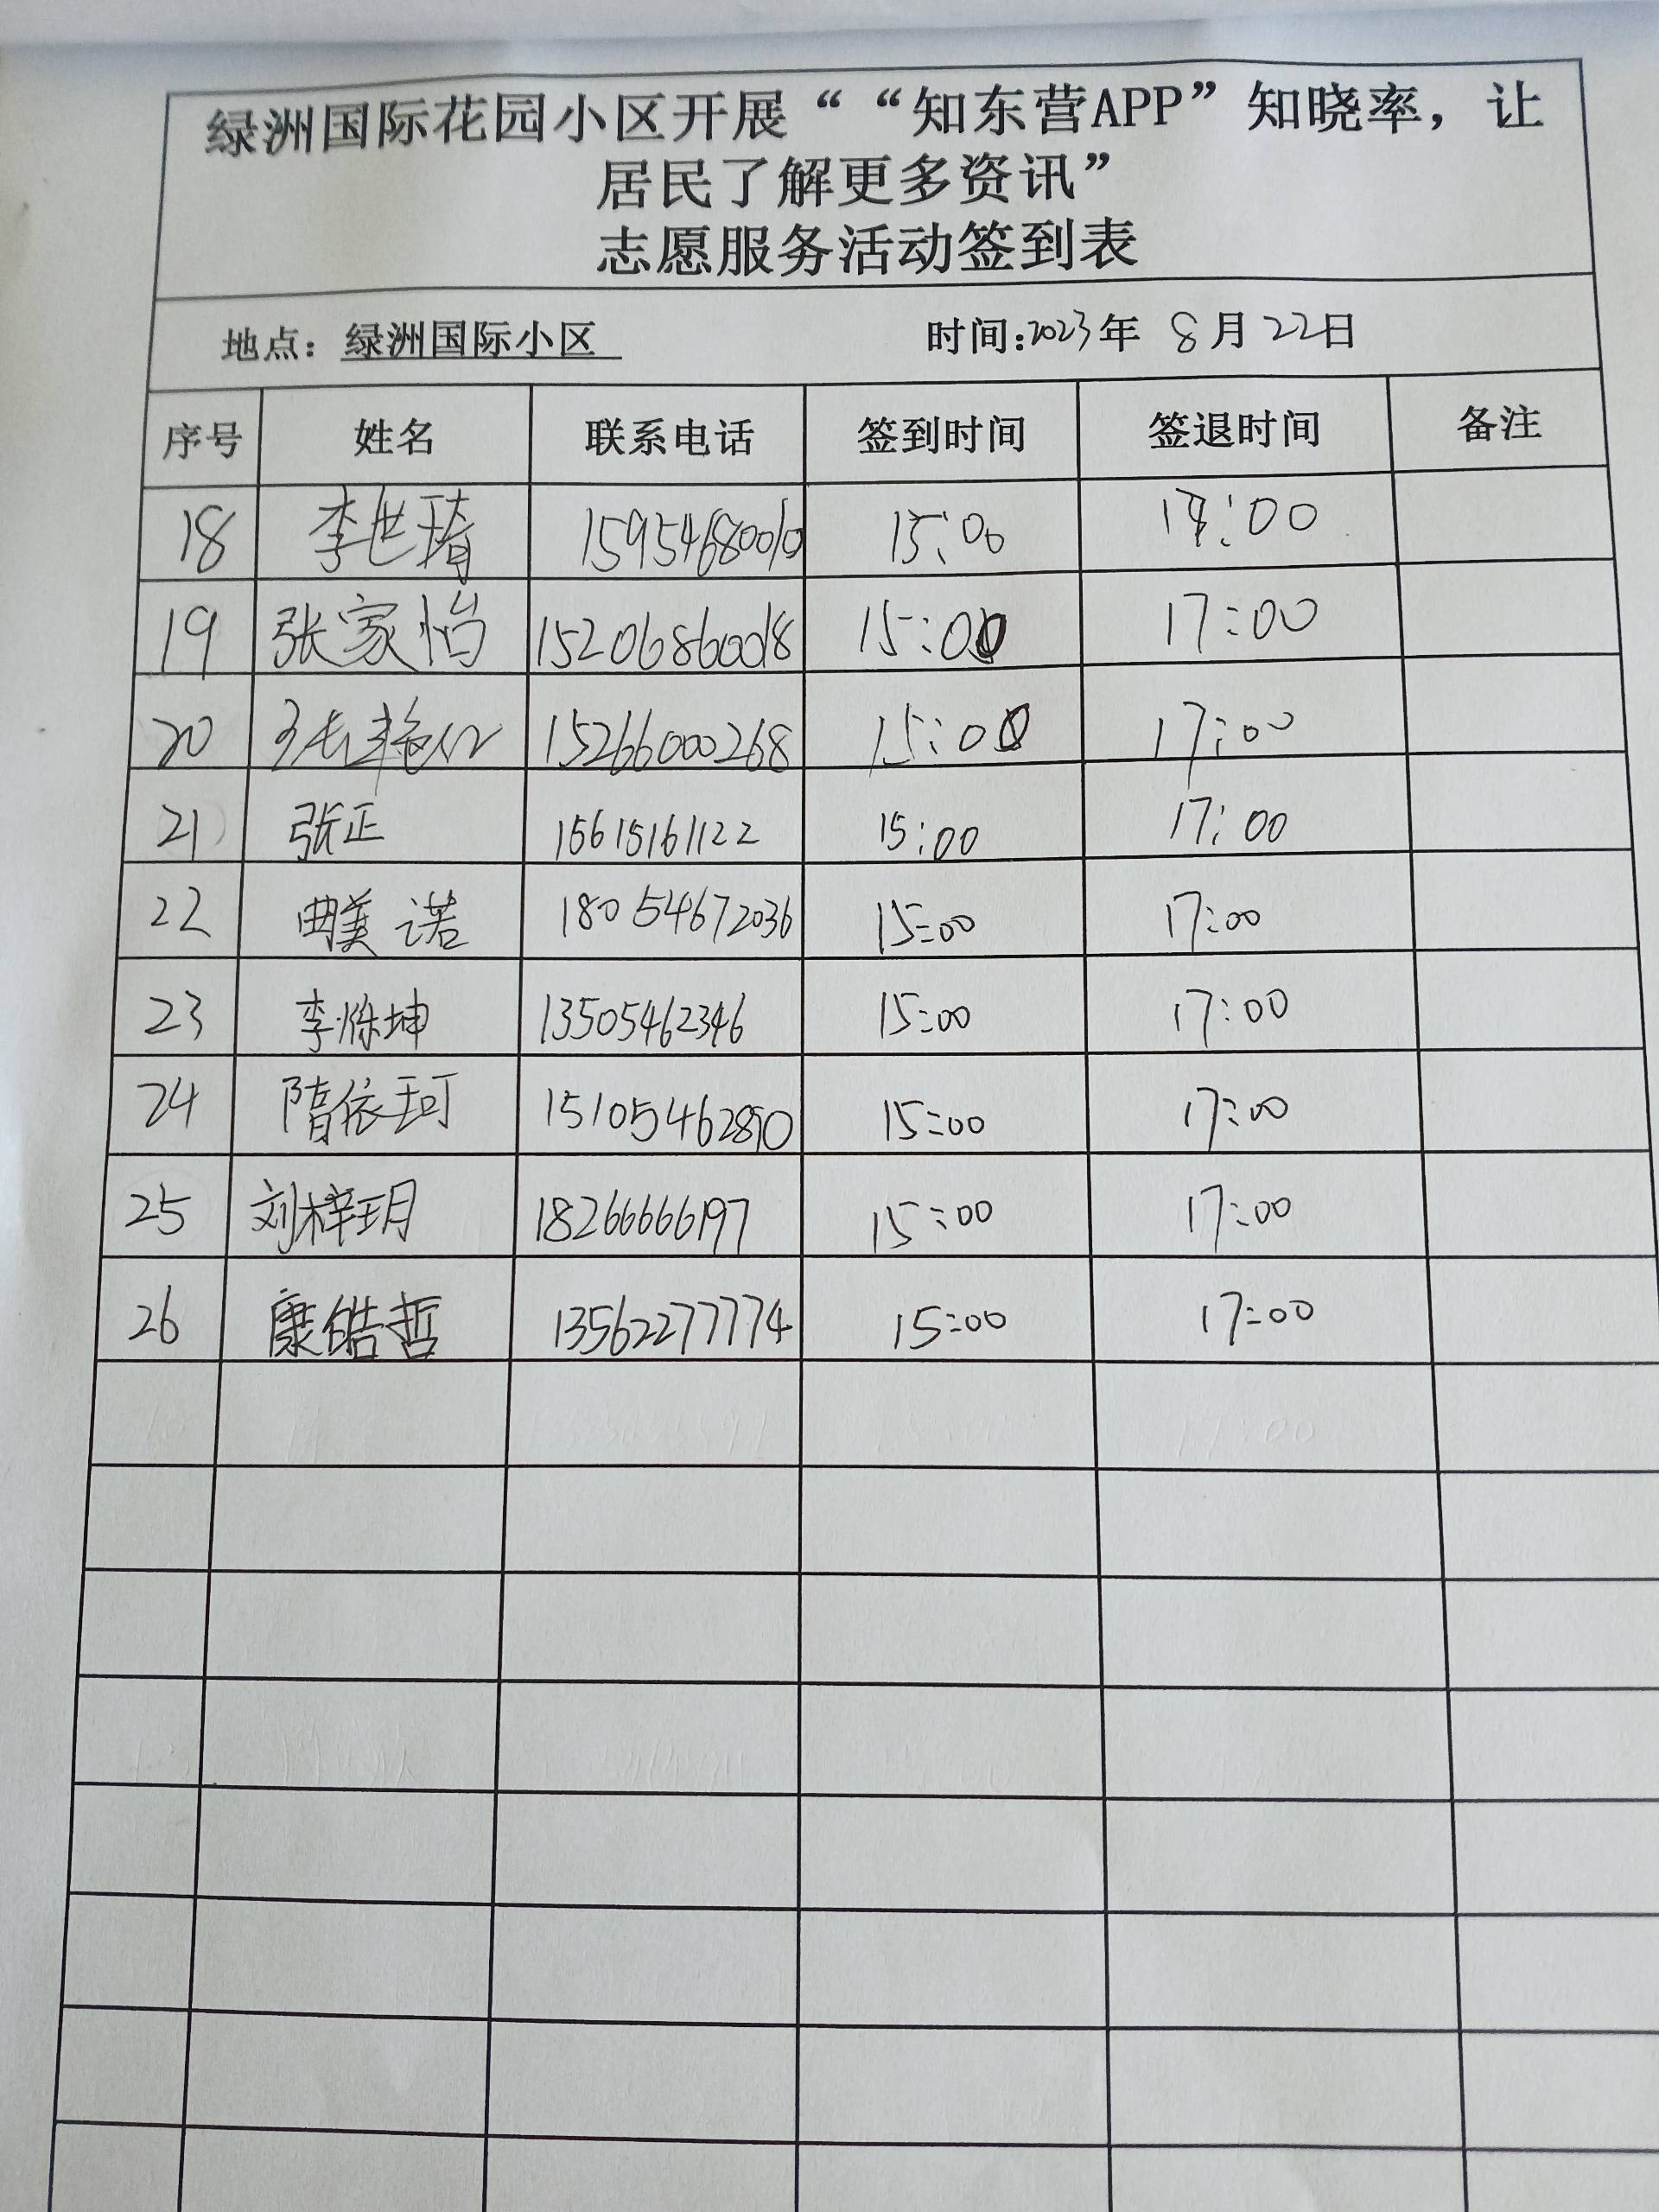 绿洲国际花园小区开展““知东营APP”知晓率，让
居民了解更多资讯”
志愿服务活动签到表
地点：绿洲国际小区 时间：2023年 8月 22日
序号 姓名 联系电话 签到时间 签退时间 备注
18 李世琦 15954680010 15:00 17:00
19 张家怡 15206860018 15:00 17:00
20 15266000268 15:00 17:00
21 张正 15615161122 15:00 17:00
22 曲美诺 18054672036 15:00 17:00
23 李烁坤 13505462346 15:00 17:00
24 隋依珂 15105462890 15:00 17:00
25 刘梓玥 18266666197 15:00 17:00
26 康皓哲 13562277774 15:00 17:00